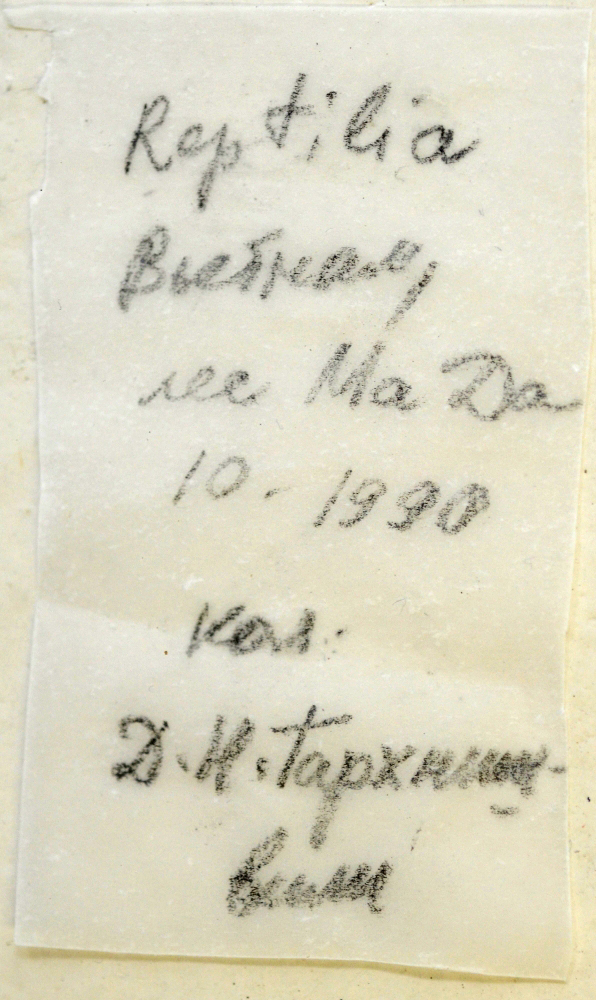 Reptilia
Вьетнам,
лес Ма Да
10-1990
кол.
Д.Н.Тархниш-
вили